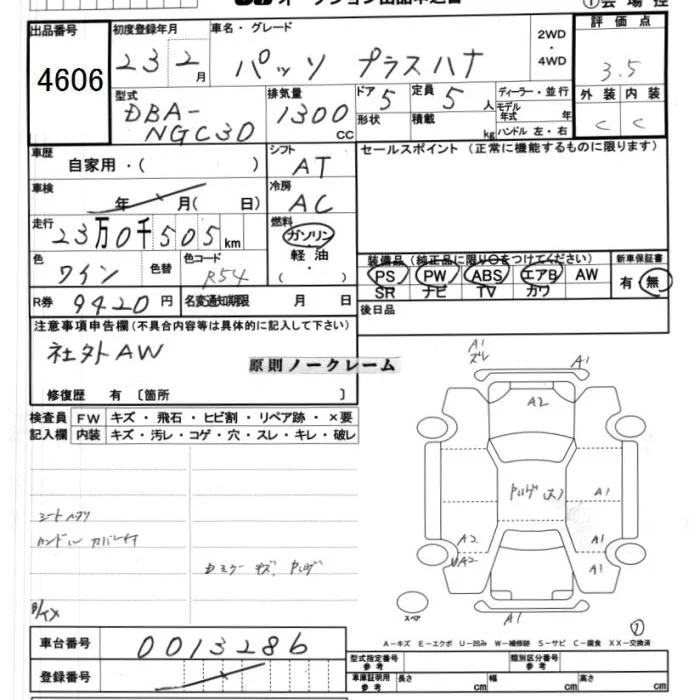 出品番号
4606
初度登録年月
23 2 月
車名・グレード
パッソ プラスハナ
2WD
・
4WD
評価点
3.5
外装 内装
C C
型式
DBA-
NGC30
排気量
1300
CC
ドア 5
定員 5 人
形状
積載 kg
ディーラー・並行
モデル
年式 年
ハンドル 左・右
車歴
自家用・( )
シフト
AT
セールスポイント (正常に機能するものに限ります)
車検
年 月( 日)
冷房
AC
走行
23万0千505km
燃料
ガソリン
軽油
( ・ )
色
ワイン
色替
色コード
R54
装備品 (純正品に限り○をつけてください)
PS PW ABS エアB AW
SR ナビ TV カワ
新車保証書
有 無
R券 9420円
名変通知期限 月 日
後日品
注意事項申告欄 (不具合内容等は具体的に記入して下さい)
社外AW
原則ノークレーム
修復歴 有 〔箇所 〕
検査員 FW キズ・飛石・ヒビ割・リペア跡・×要
記入欄 内装 キズ・汚レ・コゲ・穴・スレ・キレ・破レ
シートヘタリ
ハンドルカバー付
A1
ズレ
A1
A2
A1
A2
A1
UA2
A1
A1
スペア
A-キズ E-エクボ U-凹み W-補修跡 S-サビ C-腐食 XX-交換済
車台番号 0013286
登録番号
型式指定番号
参考
類別区分番号
参考
車庫証明用
参考
長さ cm 幅 cm 高さ cm